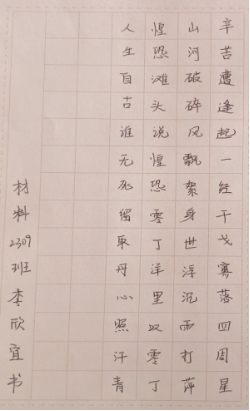 辛苦遭逢起一经干戈寥落四周星
山河破碎风飘絮身世浮沉雨打萍
惶恐滩头说惶恐零丁洋里叹零丁
人生自古谁无死留取丹心照汗青
材料2309班李欣宜书